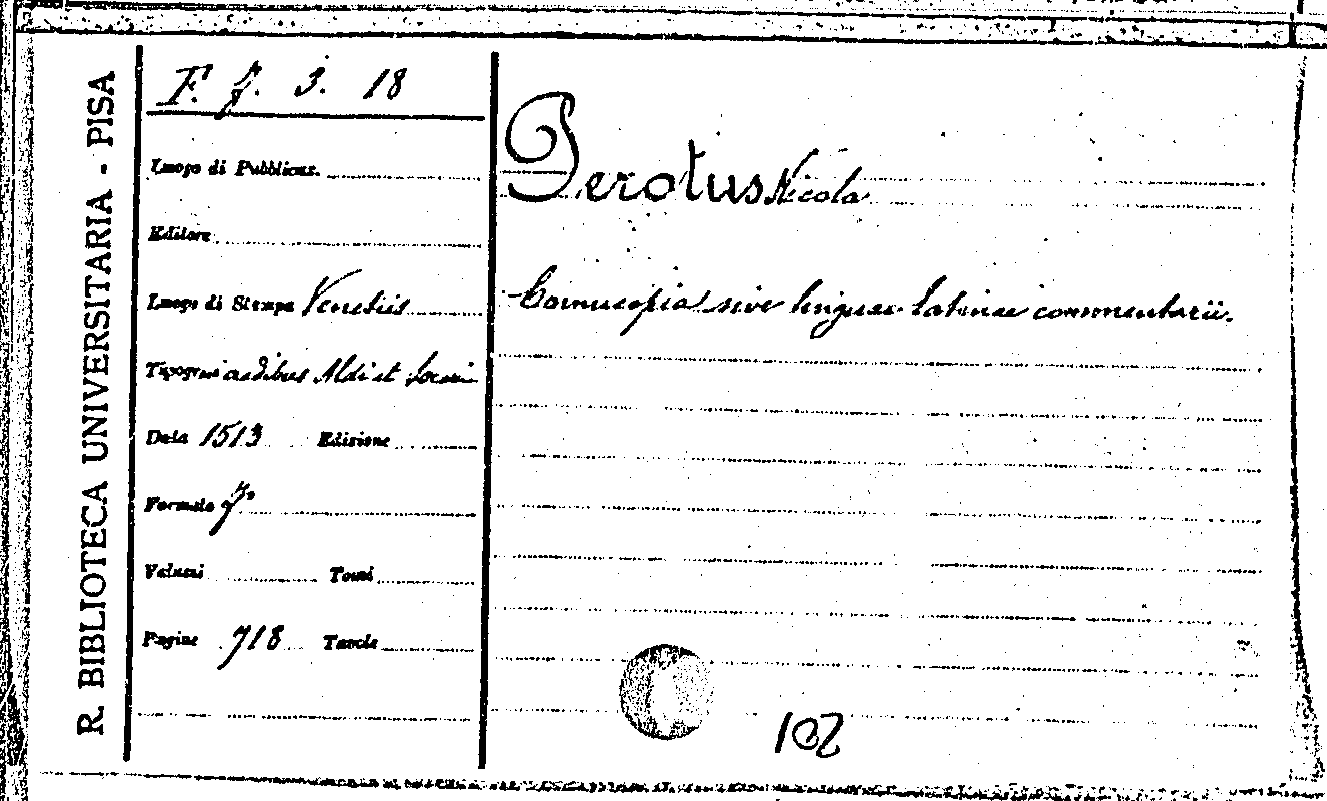 R. BIBLIOTECA UNIVERSITARIA - PISA
F. f. 3. 18
Luogo di Pubblicaz.
Editore
Luogo di Stampa Venetiis
Tipogr. in aedibus Aldi et Soceri
Data 1513 Edizione
Formato f°
Volumi Tomi
Pagine 718 Tavole
Perotus Nicola
Cornucopia sive linguae latinae commentarii.
102